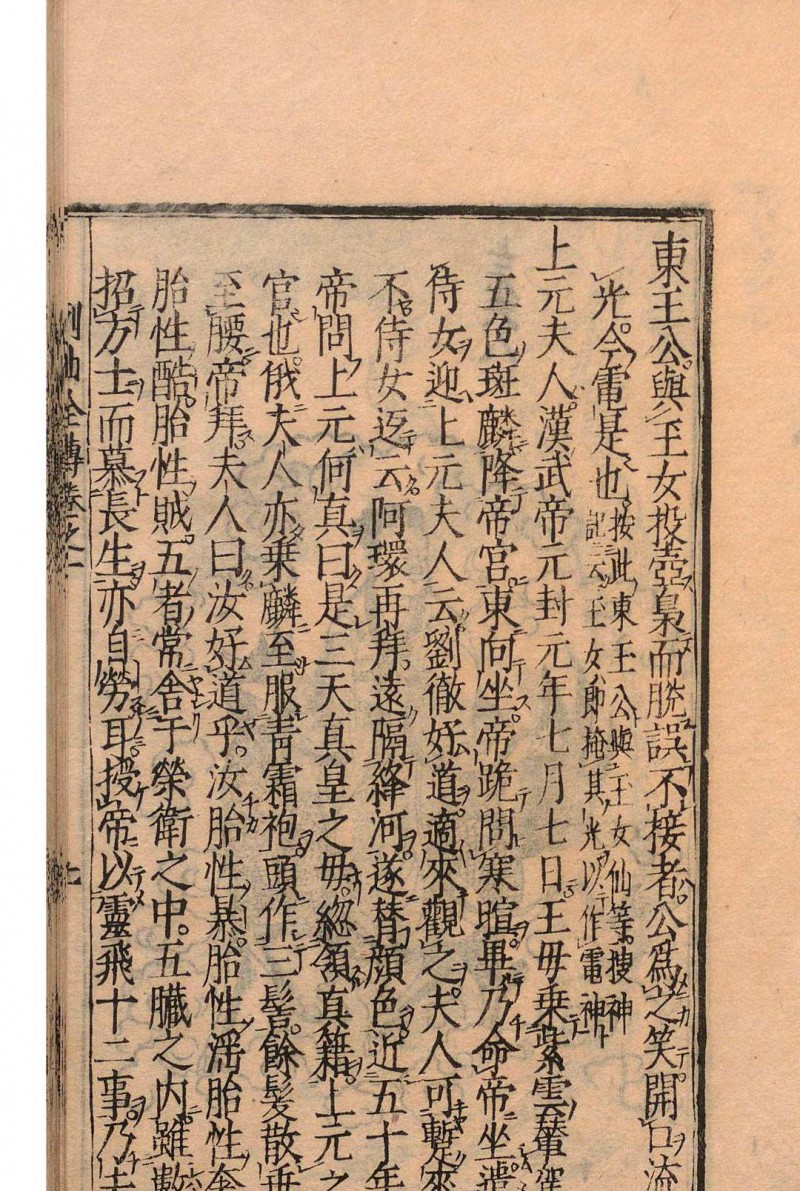 東王公與玉女投壺梟而脱誤不接者公爲之笑開口流
光今電是也按此東王公與玉女仙等搜神
記云玉女即掩其光以作電神
上元夫人漢武帝元封元年七月七日王母乗紫雲輦
五色斑麟降帝宮東向坐帝跪問寒暄畢乃命帝坐遣
侍女迎上元夫人云劉徹好道適來觀之夫人可暫來
不侍女返云阿環再拜遠隔絳河遂替顔色近五十年
帝問上元何真曰是三天真皇之母總領真籍上元之
官也俄夫人亦乗麟至服青霜袍頭作三髻餘髮散垂
至腰帝拜夫人曰汝好道乎汝胎性暴胎性淫胎性奢
胎性酷胎性賊五者常舎于榮衛之中五臓之内雖
招方士而慕長生亦自勞耳授帝以靈飛十二事乃
列仙全傳卷之二
七